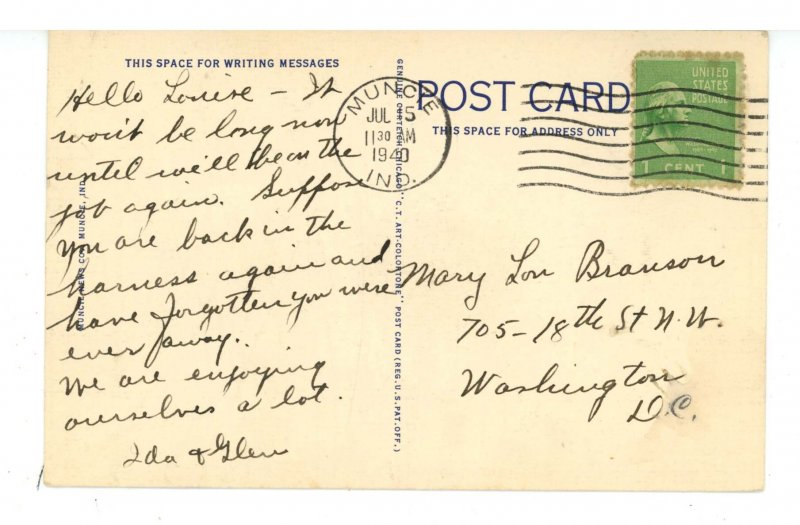 THIS SPACE FOR WRITING MESSAGES
Hello Louise - It
won't be long now
until we'll be on the
job again. Suppose
you are back in the
harness again and
have forgotten you were
ever away.
We are enjoying
ourselves a lot.
Ida & Glen
MUNCIE NEWS CO., MUNCIE, IND.
GENUINE CURTEICH-CHICAGO "C.T. ART-COLORTONE" POST CARD (REG. U.S. PAT. OFF.)
MUNCIE
JUL 5
11 30 AM
1940
IND.
POST CARD
THIS SPACE FOR ADDRESS ONLY
UNITED
STATES
POSTAGE
1 CENT 1
Mary Lou Branson
705-18th St N.W.
Washington
D.C.